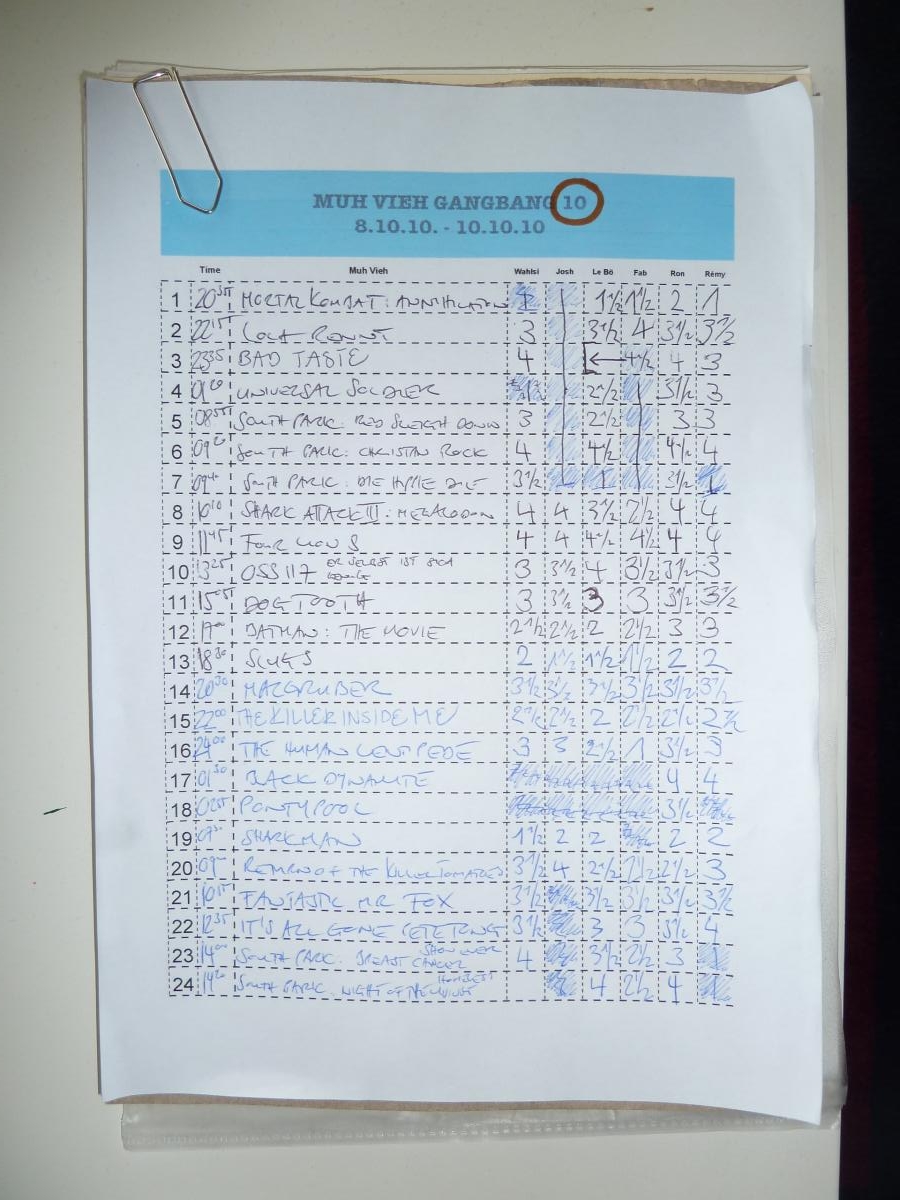 MUH VIEH GANGBANG 10
8.10.10. - 10.10.10
Time Muh Vieh Wahlsi Josh Le Bö Fab Ron Rémy
1 20³⁵ MORTAL KOMBAT: ANNIHILATION 1½ 1½ 2 1
2 22¹⁵ LOLA RENNT 3 3½ 4 3½ 3½
3 23³⁵ BAD TASTE 4 ← 4½ 4 3
4 01²⁰ UNIVERSAL SOLDIER 2½ 3½ 3
5 08⁵⁵ SOUTH PARK: RED SLEIGH DOWN 3 2½ 3 3
6 09²⁰ SOUTH PARK: CHRISTIAN ROCK 4 4½ 4½ 4
7 09⁴⁰ SOUTH PARK: DIE HIPPIE DIE 3½ 3½
8 10¹⁰ SHARK ATTACK III: MEGALODON 4 4 3½ 2½ 4 4
9 11⁴⁵ FOUR LIONS 4 4 4½ 4½ 4 4
10 13²⁵ OSS 117 ER SELBST IST SICH GENUG 3 3½ 4 3½ 3½ 3
11 15⁰⁵ DOGTOOTH 3 3½ 3 3 3½ 3½
12 17⁰⁰ BATMAN: THE MOVIE 2½ 2½ 2 2½ 3 3
13 18³⁰ SLUGS 2 1½ 1½ 1½ 2 2
14 20³⁰ MACGRUBER 3½ 3½ 3½ 3½ 3½ 3½
15 22⁰⁰ THE KILLER INSIDE ME 2½ 2½ 2 2½ 2½ 2½
16 24⁰⁰ THE HUMAN CENTIPEDE 3 3 2½ 1 3½ 3
17 01³⁰ BLACK DYNAMITE 4 4
18 PONTYPOOL 3½
19 07³⁰ SHARKMAN 1½ 2 2 2 2
20 09⁰⁰ RETURN OF THE KILLER TOMATOES 3½ 4 2½ 2½ 3
21 10⁵⁵ FANTASTIC MR FOX 3½ 3½ 3½ 3½ 3½
22 12³⁵ IT'S ALL GONE PETE TONG 3½ 3 3 3½ 4
23 14⁰⁰ SOUTH PARK: BREAST CANCER SHOW EVER 4 3½ 2½ 3
24 14²⁰ SOUTH PARK: NIGHT OF THE LIVING HOMELESS 4 2½ 4